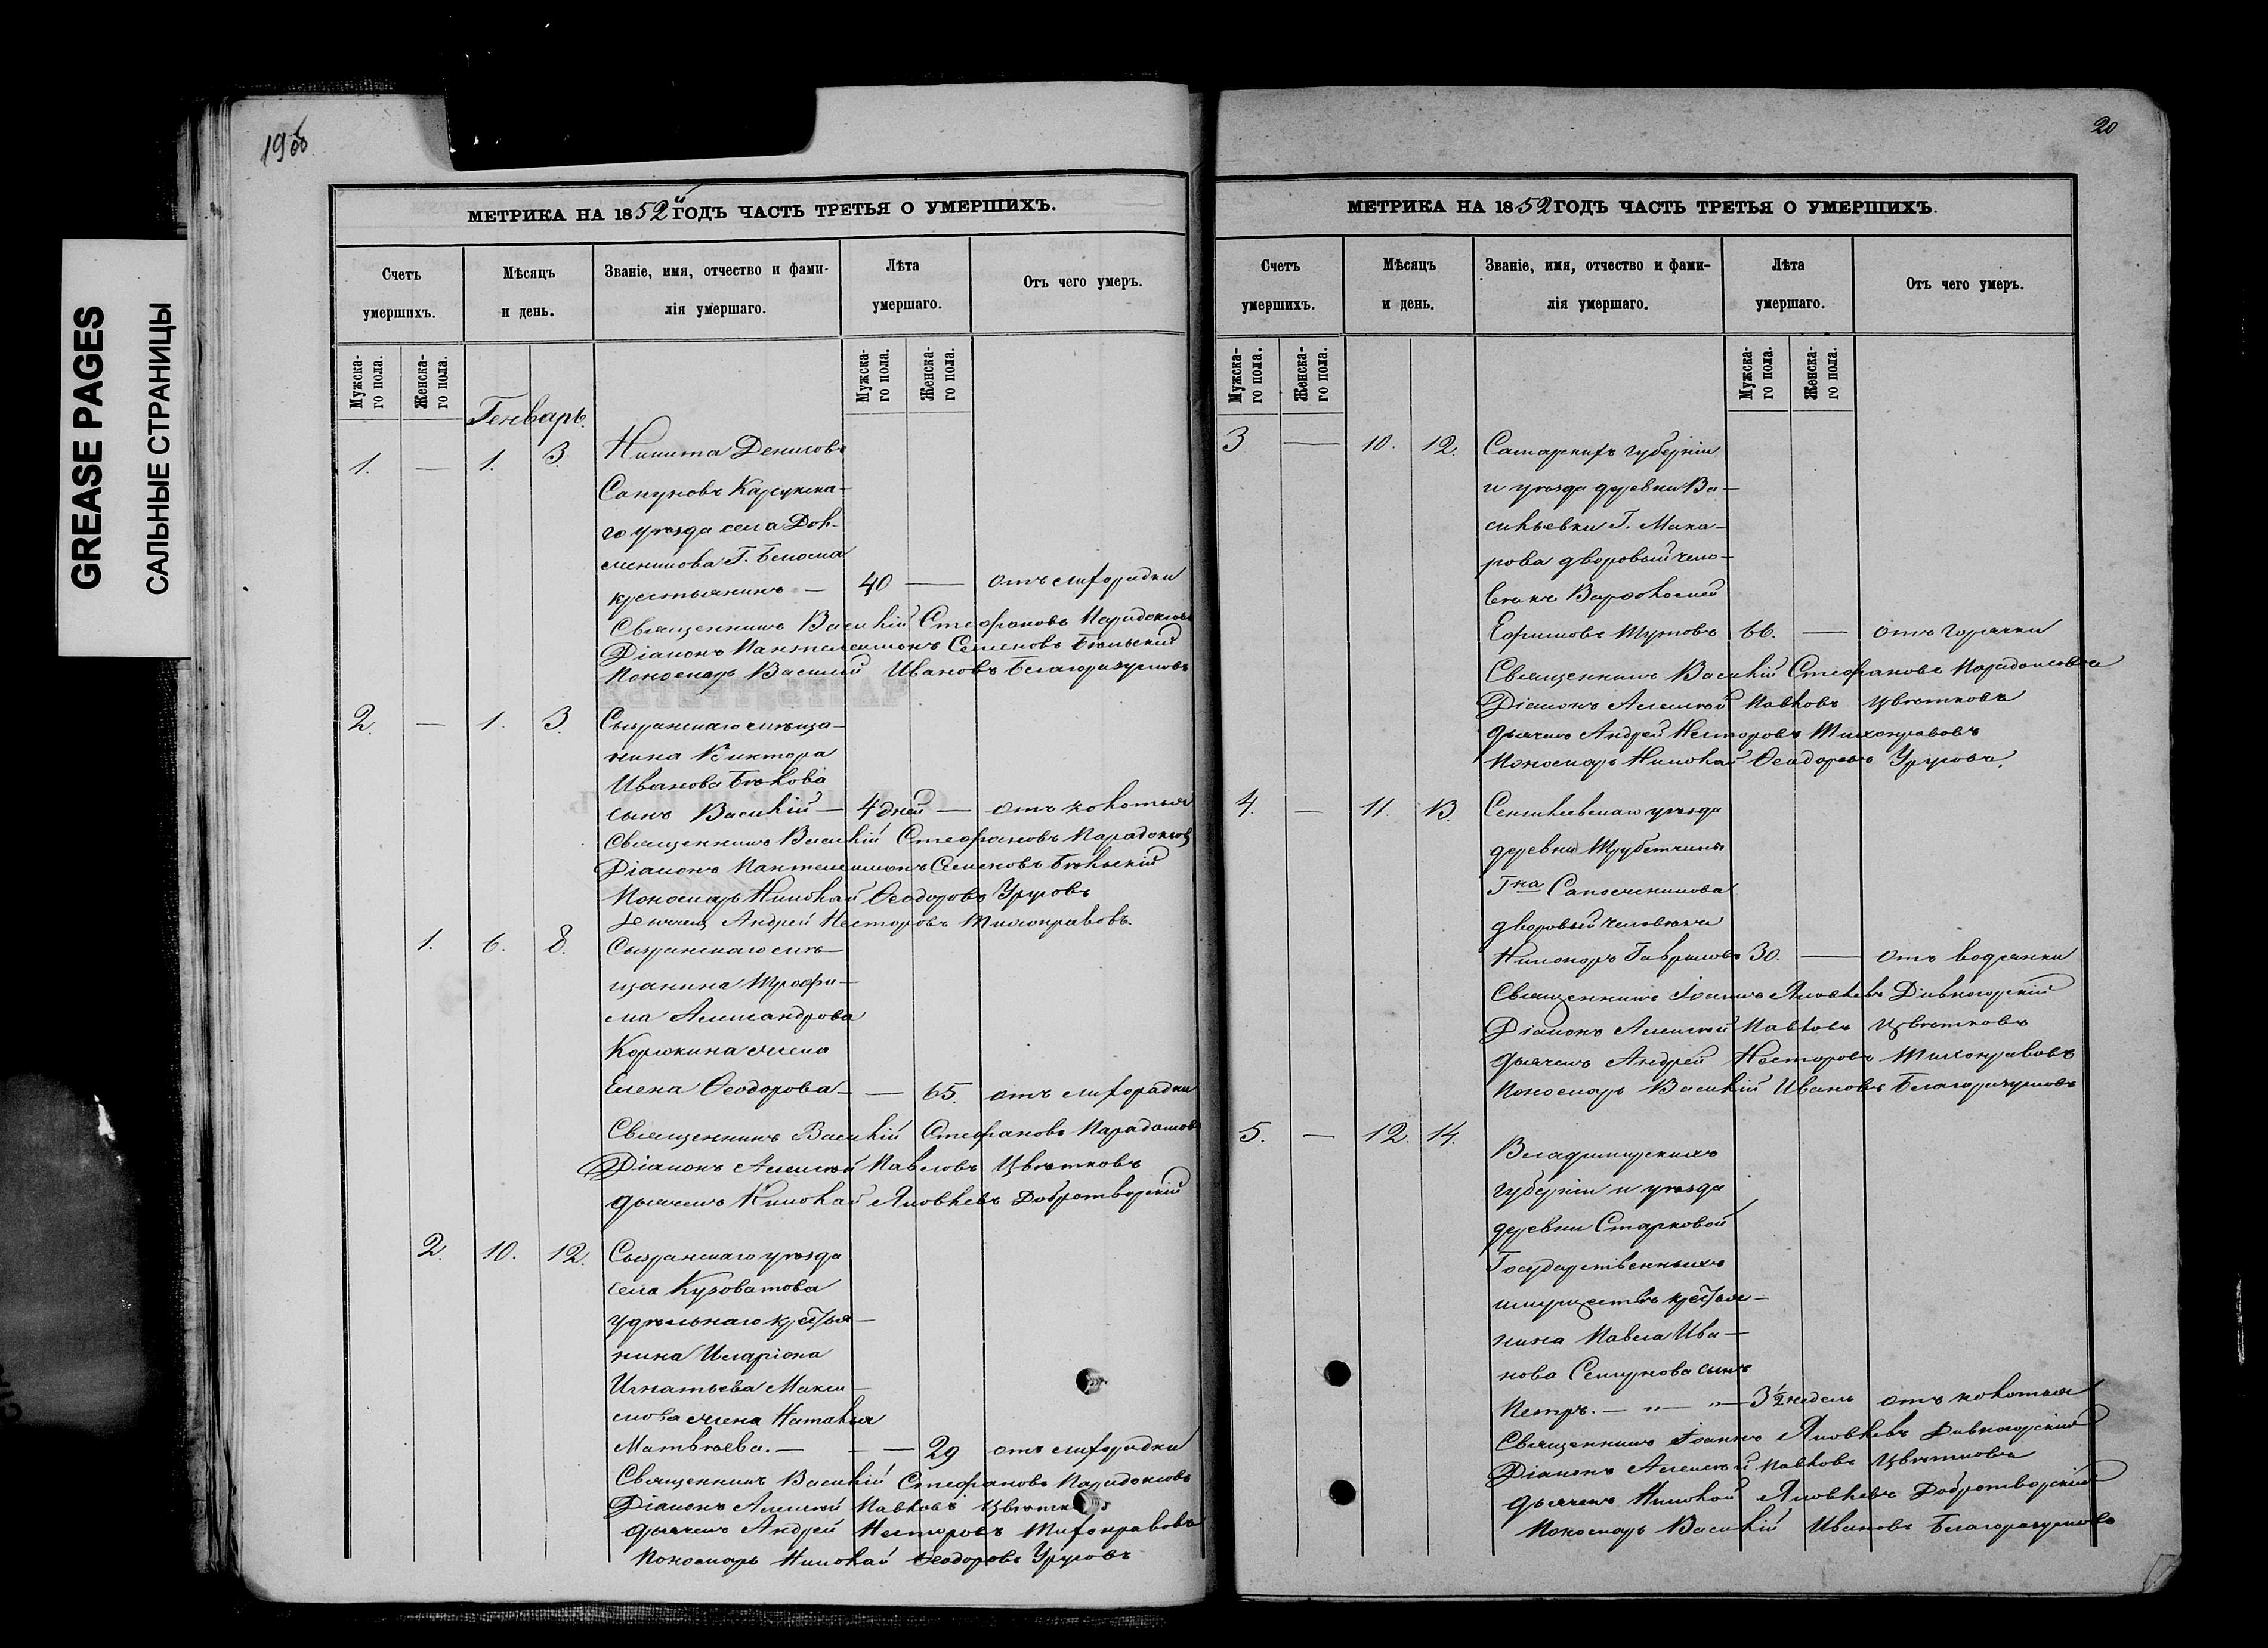 GREASE PAGES
САЛЬНЫЕ СТРАНИЦЫ
МЕТРИКА НА 1852й ГОДЪ ЧАСТЬ ТРЕТЬЯ О УМЕРШИХЪ.
Счетъ умершихъ.
Мѣсяцъ и день.
Званіе, имя, отчество и фами-
лія умершаго.
Лѣта умершаго.
Отъ чего умеръ.
Мужска-
го пола.
Женска-
го пола.
Мужска-
го пола.
Женска-
го пола.
Генварь.
1. — 1. 3. Никита Денисовъ
Сапуновъ Карсунска-
го уѣзда села
крестьянинъ — 40 — отъ лихорадки
Священникъ Василій Стефановъ Парадоксовъ
Діаконъ Пантелеимонъ Семеновъ Бѣльскій
Пономарь Василій Ивановъ Благоразумовъ
2. — 1. 3. Сызранскаго мѣща-
нина Виктора
Иванова Бѣлова
сынъ Василій — 4 дней — отъ колотья
Священникъ Василій Стефановъ Парадоксовъ
Діаконъ Пантелеимонъ Семеновъ Бѣльскій
Пономарь Николай Ѳеодоровъ Уруковъ
Дьячекъ Андрей Несторовъ Тихонравовъ.
1. 6. 8. Сызранскаго мѣ-
щанина Трофи-
ма Александрова
Корюкина жена
Елена Ѳеодорова — — 65. отъ лихорадки
Священникъ Василій Стефановъ Парадоксовъ
Діаконъ Алексѣй Павловъ Цвѣтковъ
дьячекъ Николай Яковлевъ Добротворскій
2. 10. 12. Сызранскаго уѣзда
села Кузоватова
удѣльнаго крестья-
нина Иларіона
Игнатьева Макси-
мова жена Наталья
Матвѣева. — — — 29 отъ лихорадки
Священникъ Василій Стефановъ Парадоксовъ
Діаконъ Алексѣй Павловъ Цвѣтковъ
дьячекъ Андрей Несторовъ Тихонравовъ
Пономарь Николай Ѳеодоровъ Уруковъ
20
МЕТРИКА НА 1852 ГОДЪ ЧАСТЬ ТРЕТЬЯ О УМЕРШИХЪ.
Счетъ умершихъ.
Мѣсяцъ и день.
Званіе, имя, отчество и фами-
лія умершаго.
Лѣта умершаго.
Отъ чего умеръ.
Мужска-
го пола.
Женска-
го пола.
Мужска-
го пола.
Женска-
го пола.
3 — 10. 12. Самарскихъ губерніи
и уѣзда деревни Ва-
сильевки Г. Мака-
рова дворовый чело-
вѣкъ Варѳоломей
Ефимовъ Шутовъ 66. — отъ горячки
Священникъ Василій Стефановъ Парадоксовъ
Діаконъ Алексѣй Павловъ Цвѣтковъ
дьячекъ Андрей Несторовъ Тихонравовъ
Пономарь Николай Ѳеодоровъ Уруковъ.
4. — 11. 13. Сенгилеевскаго уѣзда
деревни Трубетчины
Гна Сапожникова
дворовый человѣкъ
Никаноръ Гавриловъ 30. — отъ водянки
Священникъ Іоаннъ Яковлевъ Дивногорскій
Діаконъ Алексѣй Павловъ Цвѣтковъ
дьячекъ Андрей Несторовъ Тихонравовъ
Пономарь Василій Ивановъ Благоразумовъ
5. — 12. 14. Владимірскихъ
губерніи и уѣзда
деревни Старковой
Государственныхъ
имуществъ крестья-
нина Павла Ива-
нова Семунова сынъ
Петръ. — „ — „ — 3 ½ недель отъ колотья
Священникъ Іоаннъ Яковлевъ Дивногорскій
Діаконъ Алексѣй Павловъ Цвѣтковъ
дьячекъ Николай Яковлевъ Добротворскій
Пономарь Василій Ивановъ Благоразумовъ